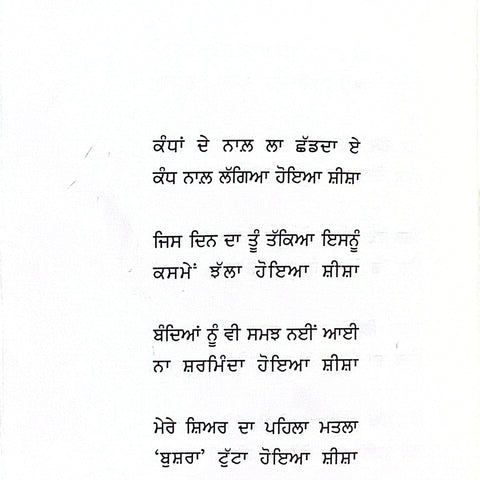 ਕੰਧਾਂ ਦੇ ਨਾਲ਼ ਲਾ ਛੱਡਦਾ ਏ
ਕੰਧ ਨਾਲ਼ ਲੱਗਿਆ ਹੋਇਆ ਸ਼ੀਸ਼ਾ
ਜਿਸ ਦਿਨ ਦਾ ਤੂੰ ਤੱਕਿਆ ਇਸਨੂੰ
ਕਸਮੇਂ ਝੱਲਾ ਹੋਇਆ ਸ਼ੀਸ਼ਾ
ਬੰਦਿਆਂ ਨੂੰ ਵੀ ਸਮਝ ਨਈਂ ਆਈ
ਨਾ ਸ਼ਰਮਿੰਦਾ ਹੋਇਆ ਸ਼ੀਸ਼ਾ
ਮੇਰੇ ਸ਼ਿਅਰ ਦਾ ਪਹਿਲਾ ਮਤਲਾ
‘ਬੁਸ਼ਰਾ’ ਟੁੱਟਾ ਹੋਇਆ ਸ਼ੀਸ਼ਾ